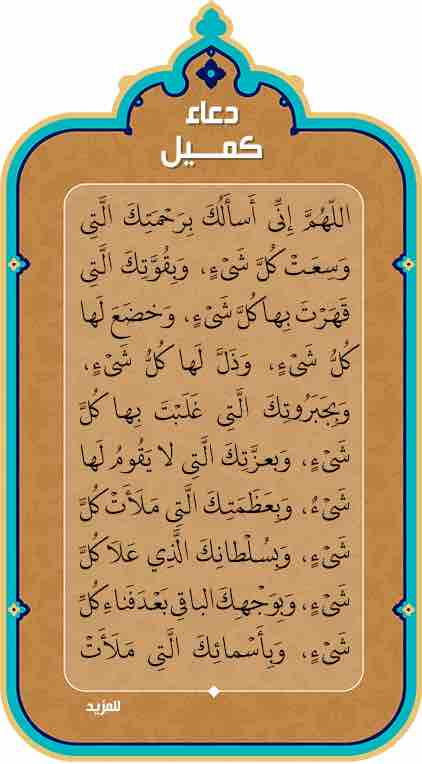 دعاء
كميل
اللّهُمَّ إِنِّي أَسأَلُكَ بِرَحْمَتِكَ الَّتِي
وَسِعَتْ كُلَّ شَيْءٍ، وَبِقُوَّتِكَ الَّتِي
قَهَرْتَ بِها كُلَّ شَيْءٍ، وَخضَعَ لَها
كُلُّ شَيْءٍ، وَذَلَّ لَها كُلُّ شَيْءٍ،
وَبِجَبَرُوتِكَ الَّتِي غَلَبْتَ بِها كُلَّ
شَيْءٍ، وَبِعزَّتِكَ الَّتِي لا يَقُومُ لَها
شَيْءٌ، وَبِعَظَمَتِكَ الَّتِي مَلَأَتْ كُلَّ
شَيْءٍ، وَبِسُلْطانِكَ الَّذِي عَلَا كُلَّ
شَيْءٍ، وَبِوَجْهِكَ الباقِي بَعْدَ فَناءِ كُلِّ
شَيْءٍ، وَبِأَسْمائِكَ الَّتِي مَلَأَتْ
للمزيد